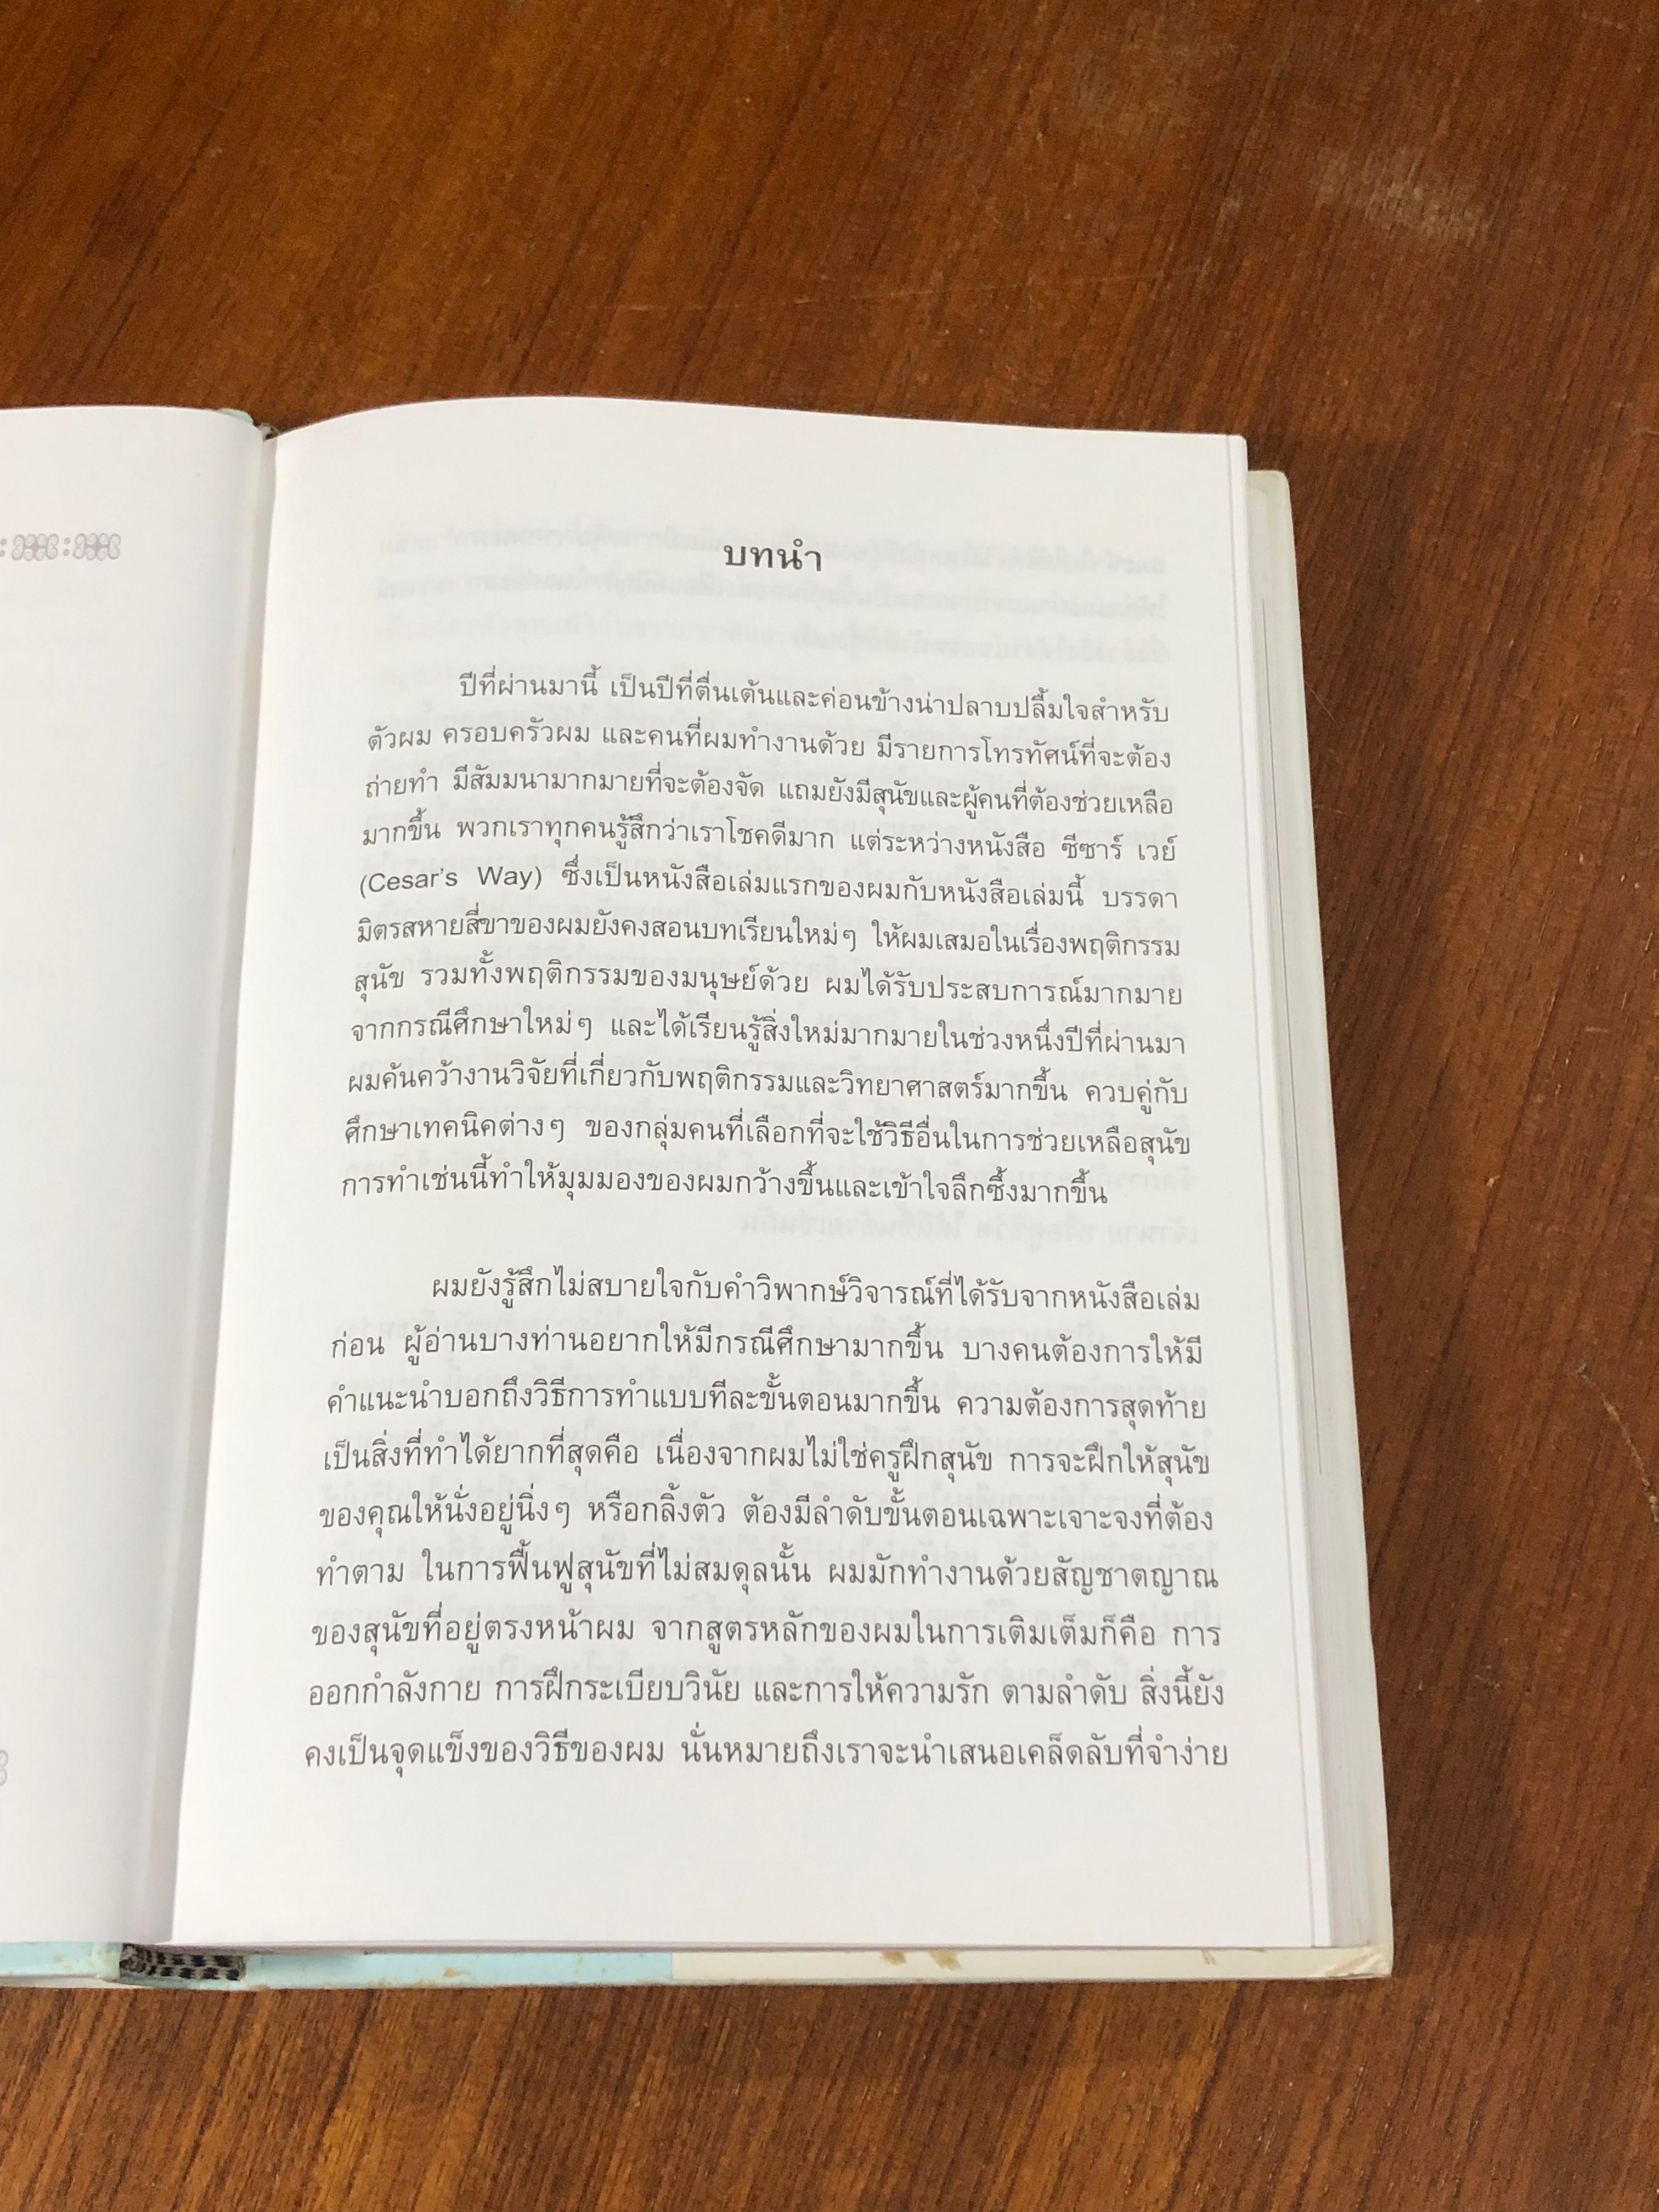 บทนำ
ปีที่ผ่านมานี้ เป็นปีที่ตื่นเต้นและค่อนข้างน่าปลาบปลื้มใจสำหรับ
ตัวผม ครอบครัวผม และคนที่ผมทำงานด้วย มีรายการโทรทัศน์ที่จะต้อง
ถ่ายทำ มีสัมมนามากมายที่จะต้องจัด แถมยังมีสุนัขและผู้คนที่ต้องช่วยเหลือ
มากขึ้น พวกเราทุกคนรู้สึกว่าเราโชคดีมาก แต่ระหว่างหนังสือ ซีซาร์ เวย์
(Cesar's Way) ซึ่งเป็นหนังสือเล่มแรกของผมกับหนังสือเล่มนี้ บรรดา
มิตรสหายสี่ขาของผมยังคงสอนบทเรียนใหม่ๆ ให้ผมเสมอในเรื่องพฤติกรรม
สุนัข รวมทั้งพฤติกรรมของมนุษย์ด้วย ผมได้รับประสบการณ์มากมาย
จากกรณีศึกษาใหม่ๆ และได้เรียนรู้สิ่งใหม่มากมายในช่วงหนึ่งปีที่ผ่านมา
ผมค้นคว้างานวิจัยที่เกี่ยวกับพฤติกรรมและวิทยาศาสตร์มากขึ้น ควบคู่กับ
ศึกษาเทคนิคต่างๆ ของกลุ่มคนที่เลือกที่จะใช้วิธีอื่นในการช่วยเหลือสุนัข
การทำเช่นนี้ทำให้มุมมองของผมกว้างขึ้นและเข้าใจลึกซึ้งมากขึ้น
ผมยังรู้สึกไม่สบายใจกับคำวิพากษ์วิจารณ์ที่ได้รับจากหนังสือเล่ม
ก่อน ผู้อ่านบางท่านอยากให้มีกรณีศึกษามากขึ้น บางคนต้องการให้มี
คำแนะนำบอกถึงวิธีการทำแบบทีละขั้นตอนมากขึ้น ความต้องการสุดท้าย
เป็นสิ่งที่ทำได้ยากที่สุดคือ เนื่องจากผมไม่ใช่ครูฝึกสุนัข การจะฝึกให้สุนัข
ของคุณให้นั่งอยู่นิ่งๆ หรือกลิ้งตัว ต้องมีลำดับขั้นตอนเฉพาะเจาะจงที่ต้อง
ทำตาม ในการฟื้นฟูสุนัขที่ไม่สมดุลนั้น ผมมักทำงานด้วยสัญชาตญาณ
ของสุนัขที่อยู่ตรงหน้าผม จากสูตรหลักของผมในการเติมเต็มก็คือ การ
ออกกำลังกาย การฝึกระเบียบวินัย และการให้ความรัก ตามลำดับ สิ่งนี้ยัง
คงเป็นจุดแข็งของวิธีของผม นั่นหมายถึงเราจะนำเสนอเคล็ดลับที่จำง่าย